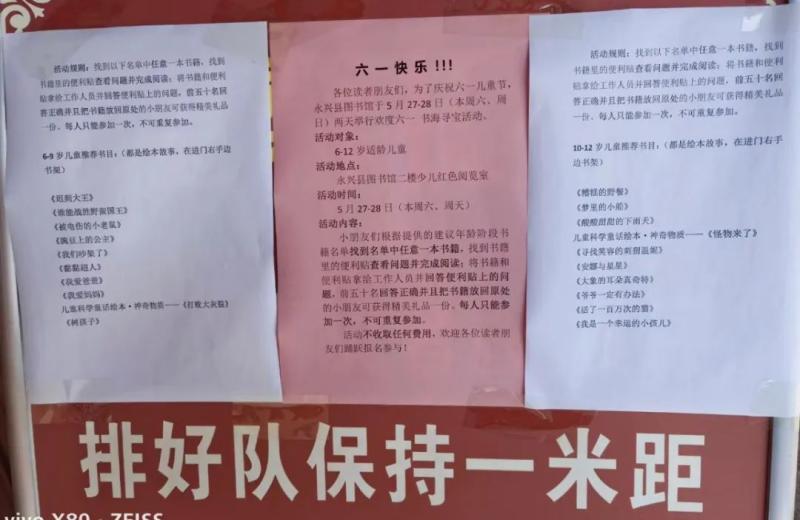 活动规则：找到以下名单中任意一本书籍，找到
书籍里的便利贴查看问题并完成阅读；将书籍和便利
贴拿给工作人员并回答便利贴上的问题，前五十名回
答正确并且把书籍放回原处的小朋友可获得精美礼品
一份。每人只能参加一次，不可重复参加。
6-9 岁儿童推荐书目：（都是绘本故事，在进门右手边
书架）
《班别大王》
《谁能战胜野蛮国王》
《被电伤的小老鼠》
《豌豆上的公主》
《我们吵架了》
《黏黏超人》
《我爱爸爸》
《我爱妈妈》
儿童科学童话绘本·神奇物质——《打败大灰狼》
《树孩子》
六一快乐!!!
各位读者朋友们，为了庆祝六一儿童节，
永兴县图书馆于 5 月 27-28 日（本周六、周
日）两天举行欢度六一 书海寻宝活动。
活动对象：
6-12 岁适龄儿童
活动地点：
永兴县图书馆二楼少儿红色阅览室
活动时间：
5 月 27-28 日（本周六、周天）
活动内容：
小朋友们根据提供的建议年龄阶段书
籍名单找到名单中任意一本书籍，找到书籍
里的便利贴查看问题并完成阅读；将书籍和
便利贴拿给工作人员并回答便利贴上的问
题，前五十名回答正确并且把书籍放回原处
的小朋友可获得精美礼品一份。每人只能参
加一次，不可重复参加。
活动不收取任何费用，欢迎各位读者朋
友们踊跃报名参与！
活动规则：找到以下名单中任意一本书籍，找到
书籍里的便利贴查看问题并完成阅读；将书籍和便利
贴拿给工作人员并回答便利贴上的问题，前五十名回
答正确并且把书籍放回原处的小朋友可获得精美礼品
一份。每人只能参加一次，不可重复参加。
10-12 岁儿童推荐书目：（都是绘本故事，在进门右手
边书架）
《糟糕的野餐》
《梦里的小船》
《酸酸甜甜的下雨天》
儿童科学童话绘本·神奇物质——《怪物来了》
《寻找笑容的刺猬温妮》
《安娜与星星》
《大象的耳朵真奇特》
《爷爷一定有办法》
《活了一百万次的猫》
《我是一个幸运的小孩儿》
排好队保持一米距
vivo X80 · ZEISS